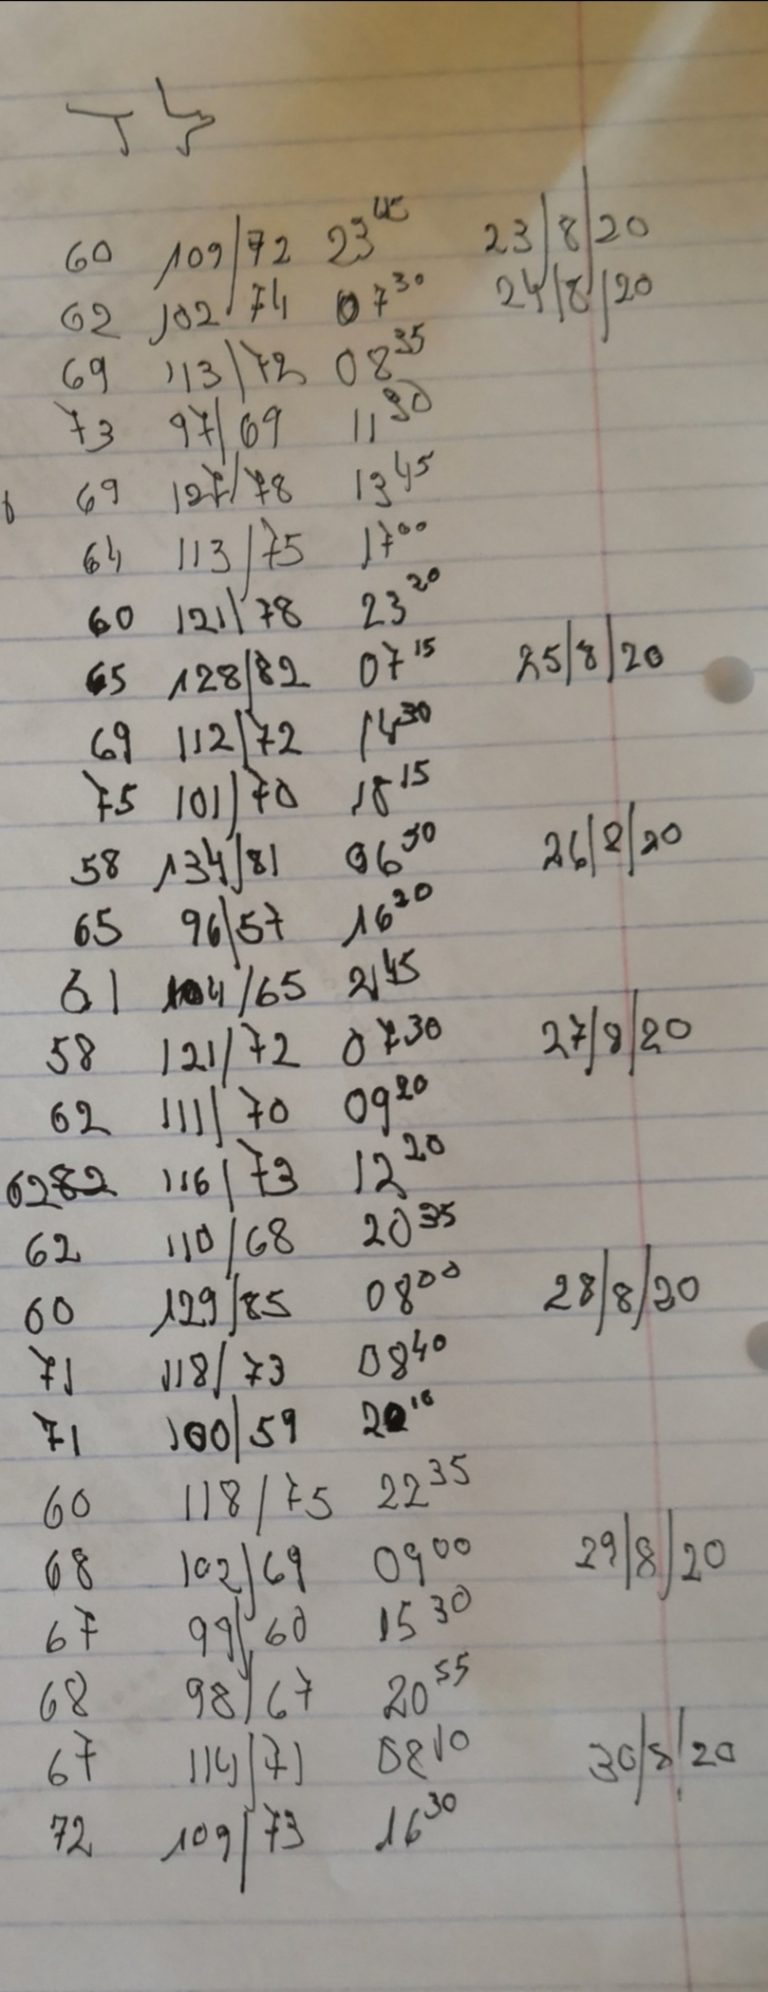 60 109/72 23⁴⁵ 23/8/20
62 102/74 07³⁰ 24/8/20
69 113/72 08³⁵
73 97/69 11³⁰
69 127/78 13⁴⁵
64 113/75 17⁰⁰
60 121/78 23²⁰
65 128/82 07¹⁵ 25/8/20
69 112/72 14³⁰
75 101/70 18¹⁵
58 134/81 06³⁰ 26/8/20
65 96/57 16²⁰
61 104/65 21⁴⁵
58 121/72 07³⁰ 27/8/20
62 111/70 09²⁰
62 116/73 12²⁰
62 110/68 20³⁵
60 129/85 08⁰⁰ 28/8/20
71 118/73 08⁴⁰
71 100/59 20¹⁰
60 118/75 22³⁵
68 102/69 09⁰⁰ 29/8/20
67 99/60 15³⁰
68 98/67 20⁵⁵
67 114/71 08¹⁰ 30/8/20
72 109/73 16³⁰